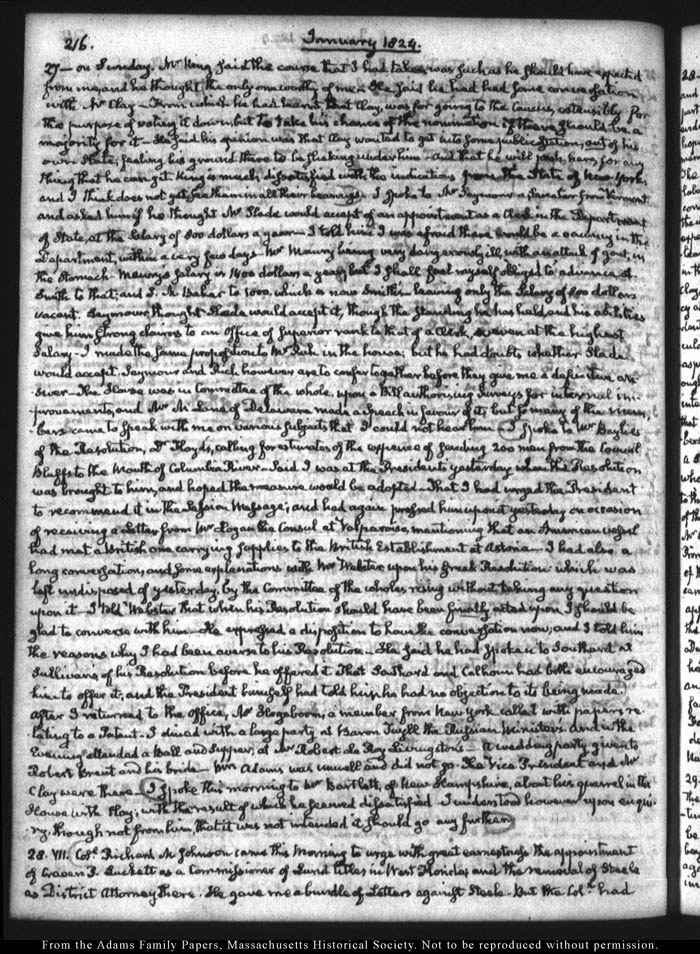 216.
January 1824.
27— on Sunday. Mr King said the course that I had taken was such as he should have expected
from me, and he thought the only one worthy of me. He said he had had some conversation
with Mr Clay — From which he had learnt that Clay was for going to the Caucus, ostensibly for
the purpose of voting it down, but to take his chance of the nomination if there should be a
majority for it — He said his opinion was that Clay wanted to get into some public station, out of his
own State; feeling his ground there to be shaking under him — And that he will for any
thing that he can get. King is much dissatisfied with the indications from the State of New-York,
and I think does not yet see them in all their bearings. I spoke to Mr Seymour a Senator from Vermont
and asked him if he thought Mr Slade would accept of an appointment as a Clerk in the Department
of State, at the Salary of 800 dollars a year — I told him I was afraid there would be a vacancy in the
Department, within a very few days — Mr Maury being very dangerously ill, with an attack of gout, in
the Stomach. Maury's Salary is 1400 dollars a year, but I shall feel myself obliged to advance
Smith to that; and T. Baker to 1000, which is now Smith's leaving only the Salary of 800 dollars
vacant. Seymour thought Slade would accept it, though the standing he has held, and his abilities
give him strong claims to an Office of superior rank to that of a Clerk, even at the highest
Salary — I made the same proposition to Mr Rich in the house; but he had doubts whether Slade
would accept. Seymour and Rich however are to confer together before they give me a definitive an-
swer — The House was in Committee of the whole, upon a Bill authorising Surveys for internal im-
provements, and Mr McLane of Delaware made a Speech in favour of it, but so many of the mem-
bers came to speak with me on various subjects that I could not hear him — I spoke to Mr Baylies
of the Resolution, Dr Floyd's, calling for estimates of the expence of sending 200 men from the Council
Bluffs to the Mouth of Columbia River — Said I was at the President's yesterday when the Resolution
was brought to him, and hoped the measure would be adopted — That I had urged the President
to recommend it in the Session Message; and had again pressed him upon it yesterday on occasion
of receiving a Letter from Mr Hogan the Consul at Valparaiso, mentioning that an American vessel
had met a British one carrying supplies to the British Establishment at Astoria — I had also a
long conversation, and some explanations with Mr Webster upon his Greek Resolution: which was
left undisposed of yesterday, by the Committee of the whole's rising without taking any question
upon it — I told Webster that when his Resolution should have been finally acted upon, I should be
glad to converse with him — He expressed a disposition to have the conversation now; and I told him
the reasons why I had been averse to his Resolution — He said he had spoken to Southard at
Sullivan's of his Resolution before he offered it. That Southard and Calhoun had both encouraged
him to offer it, and the President himself had told him he had no objection to its being made.
After I returned to the office, Mr Hogeboom, a member from New York called with papers re-
lating to a Patent — I dined with a large party at Baron Tuyll the Russian Minister's and in the
Evening attended a Ball and Supper, at Mr Robert Le Roy Livingston's — A wedding party given to
Robert Brent and his bride — Mrs Adams was unwell and did not go — The Vice President and Mr
Clay were there — I spoke this morning to Mr Bartlett, of New Hampshire, about his quarrel in the
House with Clay; with the result of which he seemed dissatisfied. I understood however upon enqui-
ry, though not from him, that it was not intended it should go any further.
28. VII. Coll. Richard M. Johnson came this Morning to urge with great earnestness the appointment
of Craven P. Luckett as a Commissioner of Land titles in West Florida; and the removal of Steele
as District Attorney there. He gave me a bundle of Letters against Steele. But the Coll. had
From the Adams Family Papers, Massachusetts Historical Society. Not to be reproduced without permission.